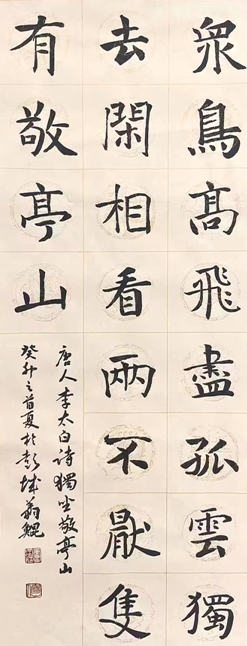 眾鳥高飛盡孤雲獨
去閑相看兩不厭隻
有敬亭山
唐人李太白詩獨坐敬亭山
癸卯之首夏於彭城